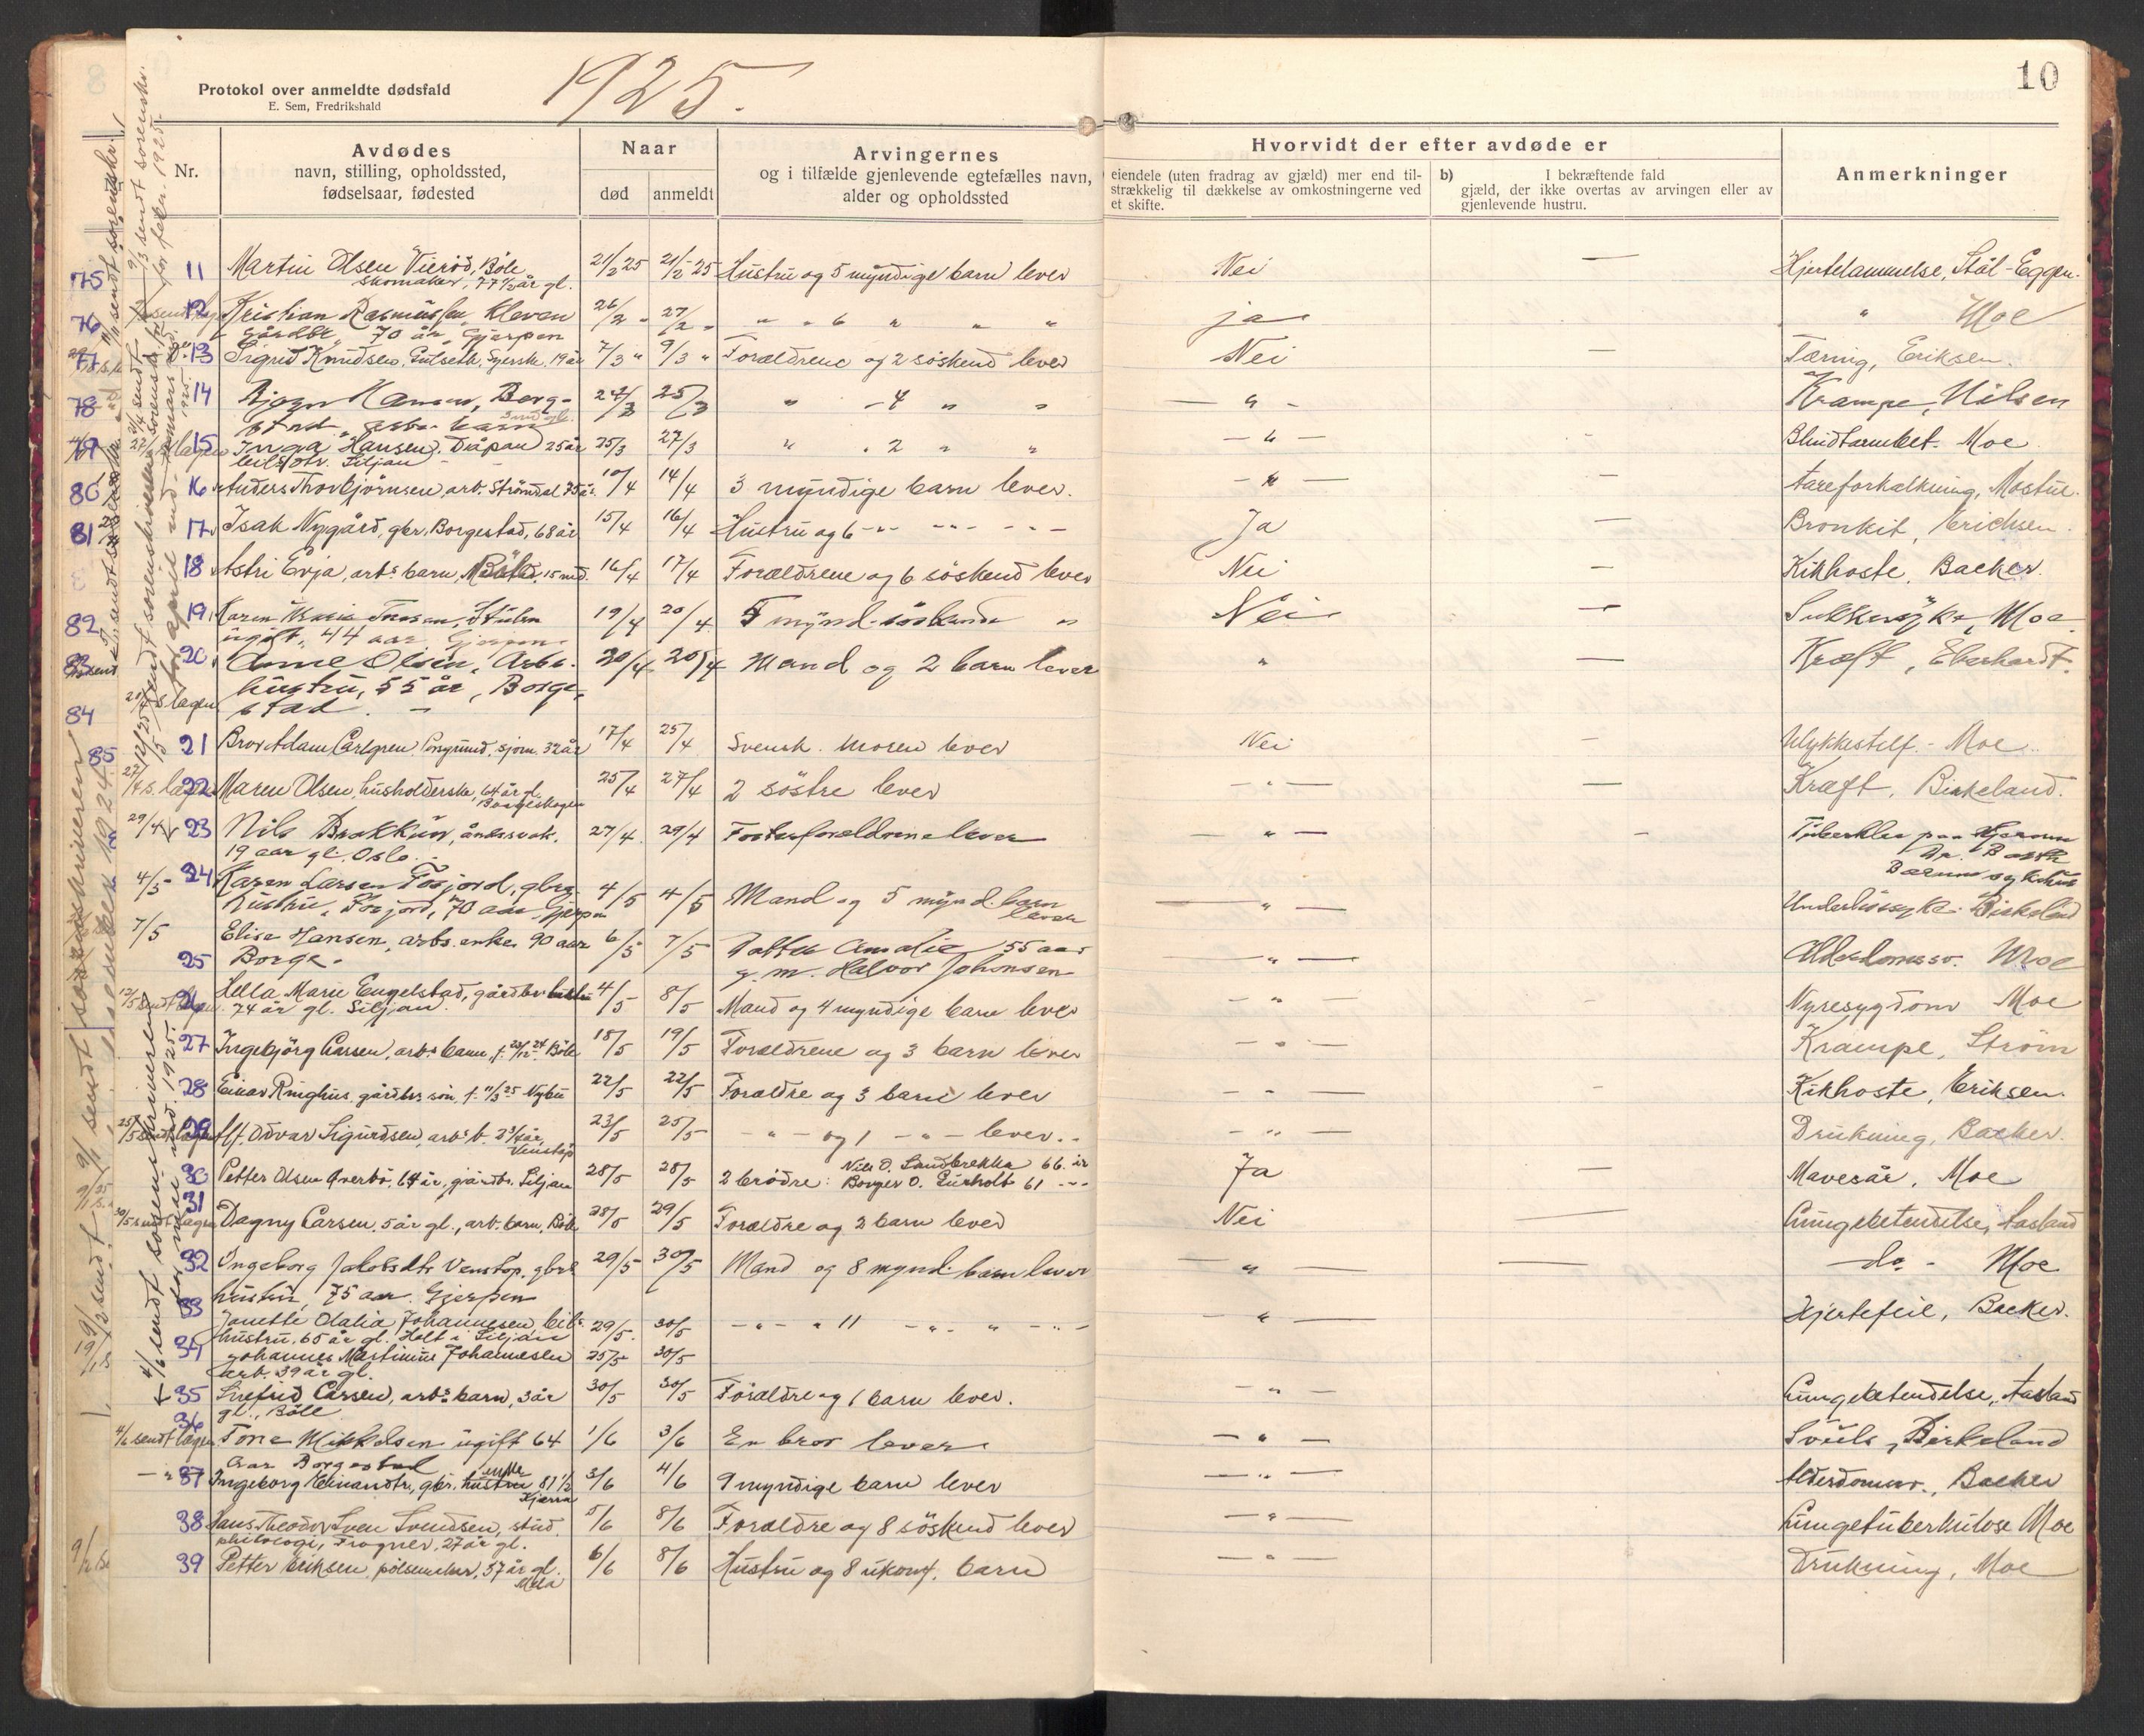 1925.
10
Protokol over anmeldte dødsfald
E. Sem, Fredrikshald
Nr.
Avdødes
navn, stilling, opholdssted,
fødselsaar, fødested
Naar
død
anmeldt
Arvingernes
og i tilfælde gjenlevende egtefælles navn,
alder og opholdssted
Hvorvidt der efter avdøde er
eiendele (uten fradrag av gjæld) mer end til-
strækkelig til dækkelse av omkostningerne ved
et skifte.
b) I bekræftende fald
gjæld, der ikke overtas av arvingen eller av
gjenlevende hustru.
Anmerkninger
75 11 Martin Olsen Vierød, Böle 21/2 25 21/2-25 Hustru og 5 myndige barn lever Nei — Hjertelammelse, Stål-Eggen.
skomaker, 77 1/2 år gl.
76 12 Kristian Rasmussen Kleven 26/2 " 27/2 " " " 6 " " " ja " Moe
Gårdbr. 70 år, Gjerpen
77 13 Sigrid Knudsen, Gulseth, 19 år 7/3 " 9/3 " Forældrene og 2 söskend lever Nei — Tæring, Eriksen.
78 14 Hansen, Berg- 24/3 25/3 " - 4 " " — " - Krampe, Nilsen
barn
15 Inga Hansen, 25 år 25/3 27/3 " . 2 " " — " — Blindtarmbet. Moe
Siljan
80 16 Anders Thorbjörnsen, arb. Strömdal 75 år. 10/4 14/4 3 myndige barn lever. — " — — Aareforkalkning, Mostue.
81 17 Isak Nygård, gbr. Borgestad, 68 år 15/4 16/4 Hustru og 6 -"- -"- -"- Ja — Bronkit, Erichsen.
18 Astri Evja, arbs barn, 15 mnd. 16/4 17/4 Forældrene og 6 söskend lever Nei — Kikhoste, Backer.
82 19 Karen Marie 19/4 20/4 mynd. söskende " Nei — Sukkersyke, Moe
ugift, 44 aar, Gjerpen
83 20 Anne Olsen, Arbs. 20/4 20/4 Mand og 2 barn lever " — Kræft, Eberhardt.
hustru, 55 år, Borge-
84 stad. —
85 21 Bror Adam Carlgren, sjöm. 32 år 17/4 25/4 Svensk. Moren lever Nei — Ulykkestilf. - Moe.
22 Maren Olsen, husholderske, 64 år gl. 25/4 27/4 2 söstre lever — " — — Kræft, Birkeland.
Borgeskogen
29/4 23 Nils 27/4 29/4 Fosterforældrene lever — " — - Tuberkler paa hjernen
19 aar gl. Oslo.
Bærum sykehus
4/5 24 Karen Larsen Fosjord, gbrs 4/5 4/5 Mand og 5 mynd. barn — " — Underlivssyke. Birkeland
hustru, Fosjord, 70 aar Gjerpen lever
7/5 Elise Hansen, arbs. enke. 90 aar 6/5 7/5 Datter Amalie 55 aar — " — Alderdomssv. Moe
25 Borge. g. m. Halvor Johnsen
26 Hella Marie Engelstad, gårdbr. hustru 4/5 8/5 Mand og 4 myndige barn lever — " — Nyresygdom Moe
74 år gl. Siljan
27 Ingebjörg Carsen, arbs barn, f. 23/12 24 Böle 18/5 19/5 Forældrene og 3 barn lever — " — Krampe, Ström
28 Einar Ringhus, gårdbrs sön, f. 11/3 25 22/5 22/5 Forældre og 3 barn lever — " — - Kikhoste, Eriksen.
29 Alf Odvar Sigurdsen, arbs b. 2 3/4 år, 23/5 25/5 — " — og 1 — " — lever. — " — Drukning, Backer.
Venstöp
30 Petter Olsen Averbö, 64 år, gårdbr. Siljan 28/5 28/5 2 brödre: Nils O. Sandbrekka 66 år Ja — Mavesår, Moe
Borger O. 61 -"-
31 Dagny Carsen, 5 år gl., arb. barn, Böle 28/5 29/5 Forældre og 2 barn lever Nei — Lungebetendelse, Aasland
32 Ingeborg Jakobsdtr. Venstöp, gbrs 29/5 30/5 Mand og 8 mynd. barn lever — " — — do - Moe
hustru, 75 aar. Gjerpen
33 Janette Olalia Johannesen 29/5 30/5 - " - " 11 - " - " - " - — " — Hjertefeil, Backer.
hustru, 65 år gl. Holt i Siljan
34 Johannes Martinius Johannesen 25/5 30/5
arb. 39 år gl.
35 Snefrid Carsen, arbs barn, 3 år 30/5 30/5 Forældre og 1 barn lever. — " — Lungebetendelse, Aasland
gl., Böle
36 Tone Mikkelsen ugift 64 1/6 3/6 En bror lever — " — Svuls, Birkeland
aar Borgestad
37 Ingeborg Einarsdtr., gbr. hustru enke 81 1/2 3/6 4/6 9 myndige barn lever — " — Alderdomssv., Backer
Kjærra
38 Hans Theodor Sven Svendsen, stud. 5/6 8/6 Forældre og 8 söskend lever — " — Lungetuberkulose Moe
philologi, Frogner, 27 år gl.
39 Petter Eriksen, pölsemaker, 57 år gl. 6/6 8/6 Hustru og 8 ukonf. barn — " — Drukning, Moe
Mæla